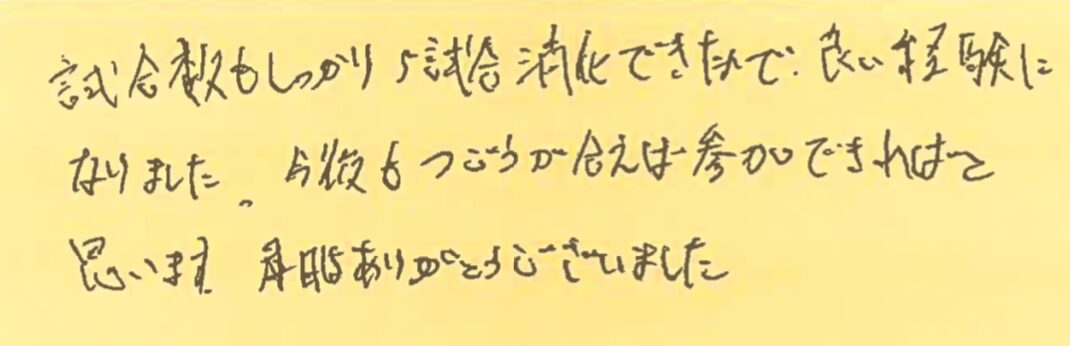 試合数もしっかり5試合消化できたので、良い経験に
なりました。今後もつごうが合えば参加できればと
思います ありがとうございました